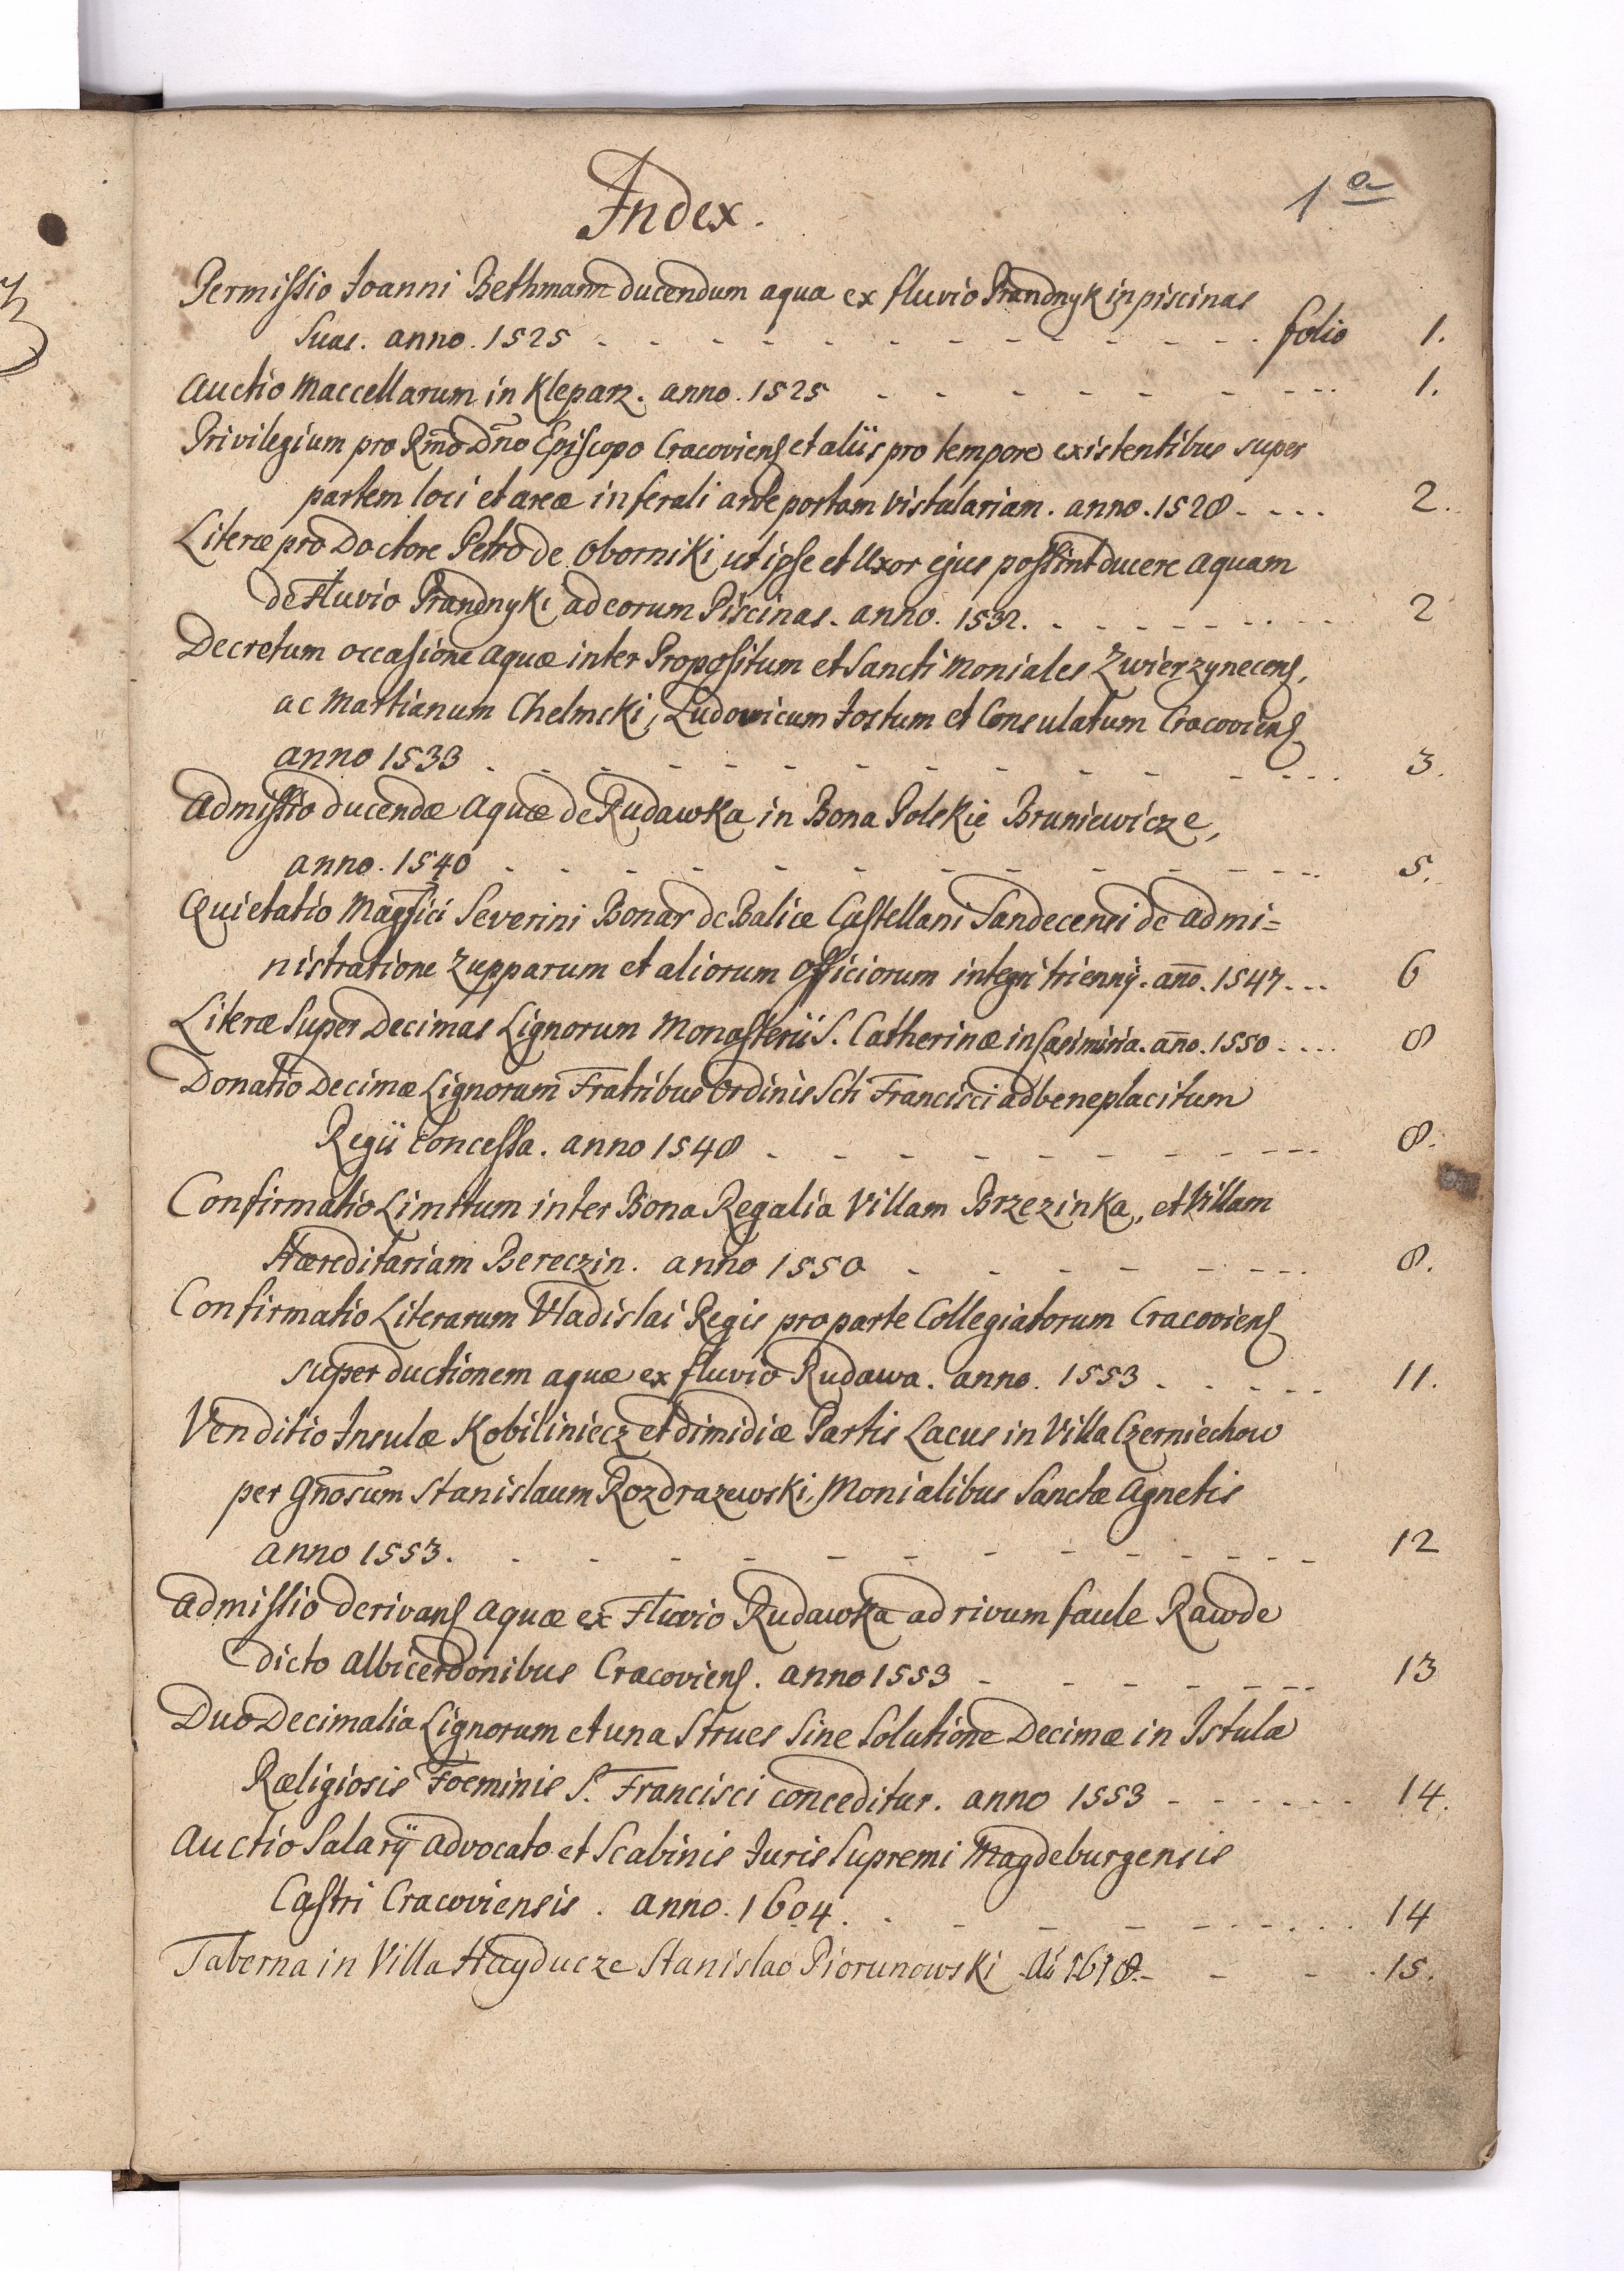 1a
Index.
Permissio Joanni Bethmann ducendum aqua ex fluvio Prandnyk in piscinas
suas. anno. 1525 - - - - - - - - - - - - folio 1.
Auctio Maccellarum in Kleparz. anno. 1525 - - - - - - - - 1.
Privilegium pro Rm̃o Dño Episcopo Cracoviens et aliis pro tempore existentibus super
partem loci et areæ in ferali ante portam vistulariam. anno. 1528 - - - - 2.
Literæ pro Doctore Petro de Oborniki ut ipse et Uxor ejus possint ducere aquam
de Fluvio Prandnyki ad eorum Piscinas. anno. 1532. - - - - - - - - - 2
Decretum occasione aquæ inter Propositum et Sancti moniales Zwierzynecens,
ac Martianum Chelmski, Ludowicum Jostum et Consulatum Cracoviens
anno 1533 - - - - - - - - - - - - - - - 3.
Admissio ducendæ aquæ de Rudawka in Bona Polskie Bruniewicze,
anno. 1540 - - - - - - - - - - - - - - 5.
Quietatio Magfici Severini Bonar de Balice Castellani Sandecensi de admi=
nistratione Zupparum et aliorum officiorum integri trienny. año. 1547 - - - 6
Literæ super Decimas Lignorum Monasterii S. Catherinæ in Casimiria. año. 1550 - - - - 8
Donatio Decimæ Lignorum Fratribus Ordinis Scti Francisci ad beneplacitum
Regii concessa. anno 1548 - - - - - - - - - - - 8.
Confirmatio Limitum inter Bona Regalia Villam Brzezinka, et Villam
Hæreditariam Bereczin. anno 1550 - - - - - - - - 8.
Confirmatio Literarum Vladislai Regis pro parte Collegiatorum Cracoviens
super ductionem aquæ ex fluvio Rudawa. anno. 1553 - - - - - - 11.
Venditio Insulæ Kobiliniecz et dimidiæ Partis Lacus in Villa Czerniechow
per Gñosum Stanislaum Rozdrazewski, Monialibus Sanctæ Agnetis
anno 1553. - - - - - - - - - - - - - - 12
Admissio derivans aquæ ex Fluvio Rudawka ad rivum faule Rawde
dicto albicerdonibus Cracoviens. anno 1553 - - - - - - - 13
Duo Decimalia Lignorum et una Strues sine solutione Decimæ in Istula
Religiosis Foeminis S. Francisci conceditur. anno 1553 - - - - - - 14.
Auctio Salarÿ advocato et Scabinis Juris Supremi Magdeburgensis
Castri Cracoviensis. anno. 1604. - - - - - - - - - 14
Taberna in Villa Hayducze Stanislao Piorunowski Aō 1618. - - - - 15.